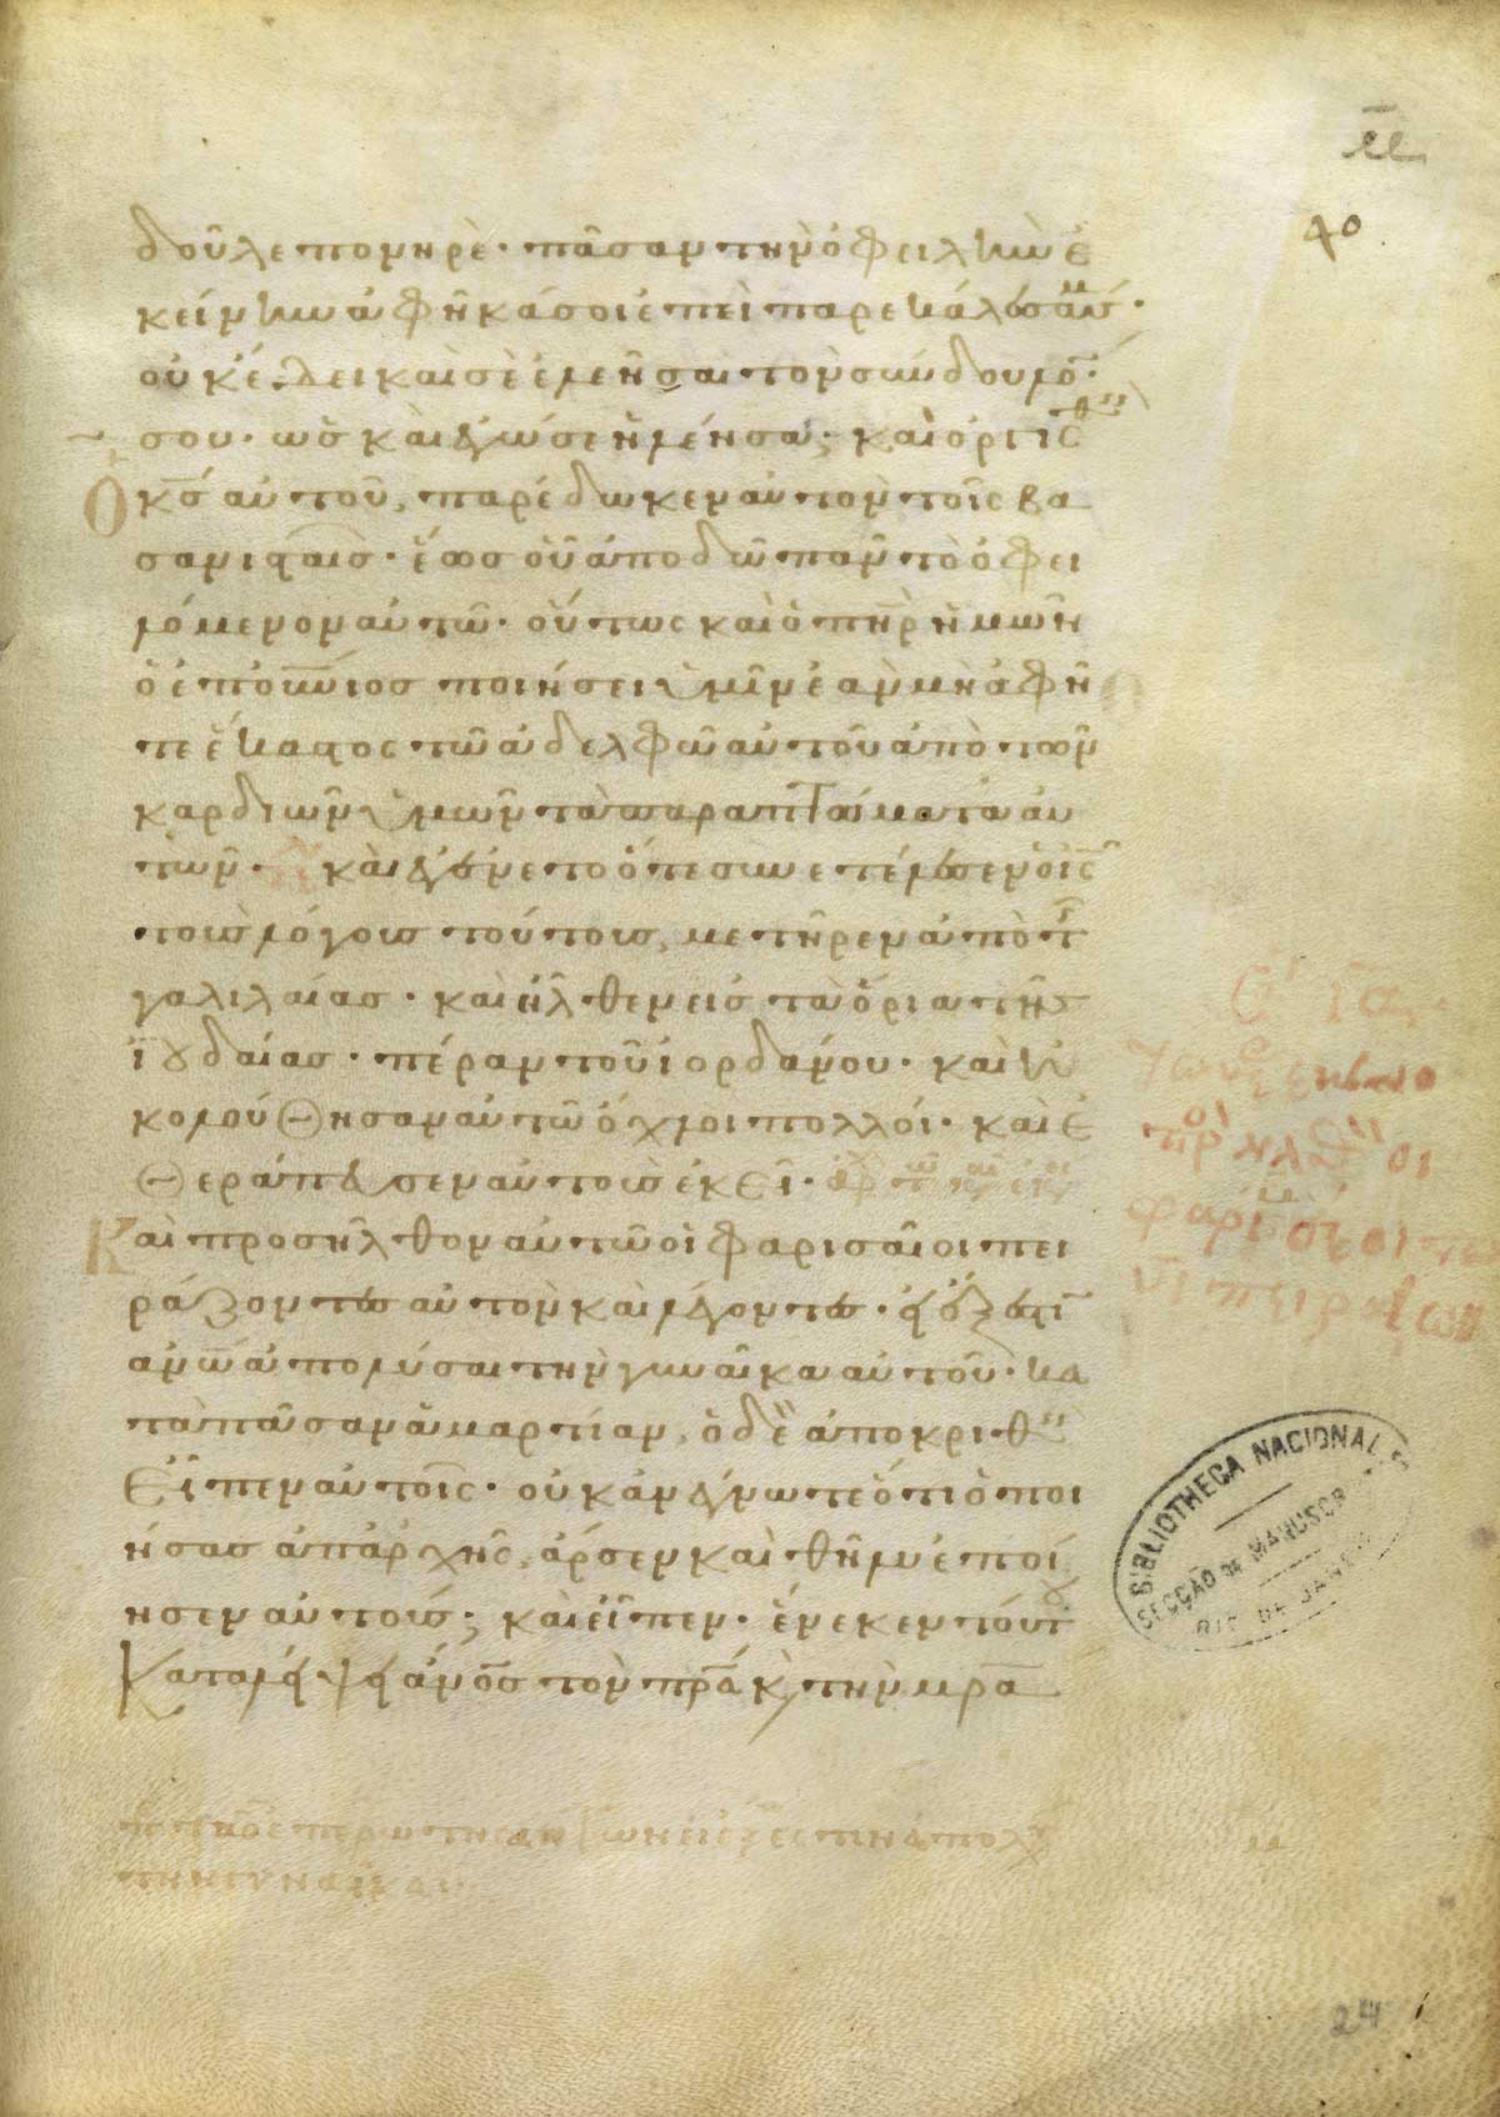 40
δοῦλε πονηρὲ· πᾶσαν τὴν ὀφειλὴν ἐ
κείνην ἀφῆκά σοι ἐπεὶ παρεκάλεσάς με·
οὐκ ἔδει καὶ σὲ ἐλεῆσαι τὸν σύνδουλόν
σου· ὡς καὶ ἐγώ σε ἠλέησα; καὶ ὀργισθεὶς
ὁ κς̄ αὐτοῦ, παρέδωκεν αὐτὸν τοῖς βα
σανισταῖς· ἕως οὗ ἀποδῶ πᾶν τὸ ὀφει
λόμενον αὐτῶ· οὕτως καὶ ὁ πη̄ρ ἡμῶν
ὁ ἐπουνιος ποιήσει ὑμῖν ἐὰν μὴ ἀφῆ
τε ἕκαστος τῶ ἀδελφῶ αὐτοῦ ἀπὸ τῶν
καρδιῶν ὑμῶν τὰ παραπτώματα αὐ
τῶν· καὶ ἐγένετο ὅτε συνετέλεσεν ὁ ις̄
τοὺς λόγους τούτους, μετῆρεν ἀπὸ τῆς
γαλιλαίας· καὶ ἦλθεν εἰς τὰ ὅρια τῆς
ἰουδαίας· πέραν τοῦ ἰορδάνου· καὶ ἠ
κολούθησαν αὐτῶ ὄχλοι πολλοί· καὶ ἐ
θεράπευσεν αὐτοὺς ἐκεῖ·
Καὶ προσῆλθον αὐτῶ οἱ φαρισαῖοι πει
ράζοντες αὐτὸν καὶ λέγοντες· εἰ ἔξεστιν
ανω̄ ἀπολύσαι τὴν γυναῖκα αὐτοῦ· κα
τὰ πᾶσαν ἁμαρτίαν, ὁ δὲ ἀποκριθεὶς
εἶπεν αὐτοῖς· οὐκ ἀνέγνωτε ὅτι ὁ ποι
ήσας ἀπ' ἀρχῆς, ἄρσεν καὶ θῆλυ ἐποί
ησεν αὐτούς; καὶ εἶπεν· ἕνεκεν τούτου
καταλείψει ἄνος̄ τὸν πρ̄α κ τὴν μρ̄α
BIBLIOTHECA NACIONAL
SECÇÃO DE MANUSCRIPTOS
RIO DE JANEIRO
24